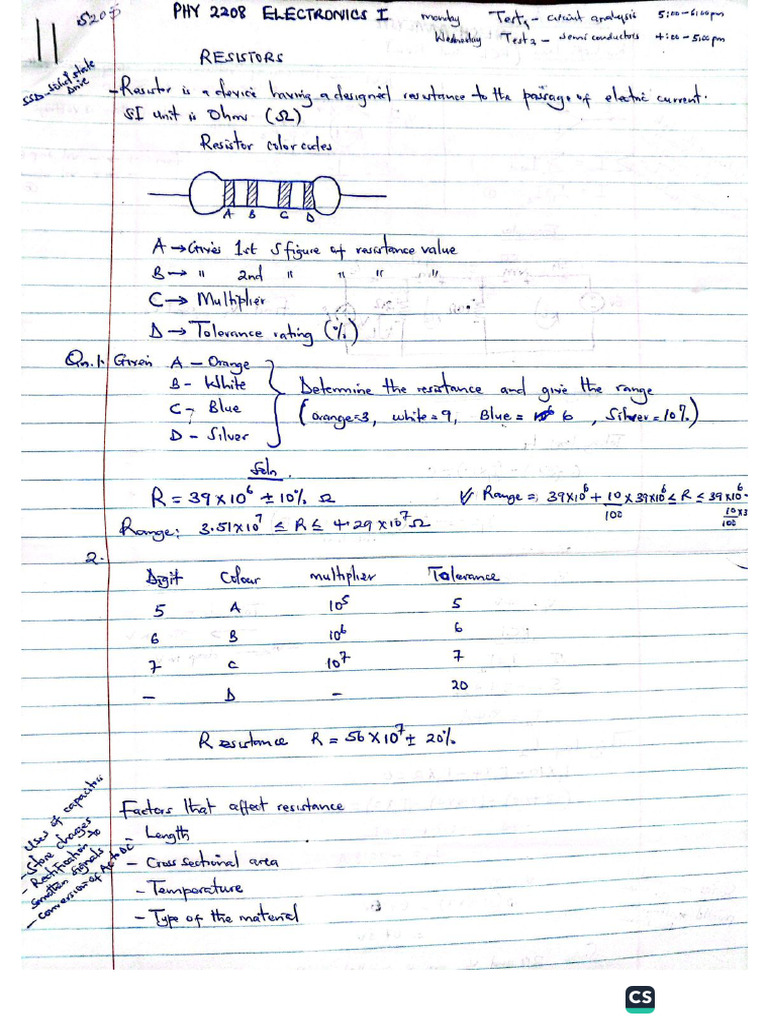 5205
PHY 2208 ELECTRONICS I
monday Test1 - circuit analysis 5:00-6:00pm
Wednesday: Test2 - semi conductors 4:00-5:00pm
11
RESISTORS
SSD - solid state
Drive
- Resistor is a device having a designed resistance to the passage of electric current.
SI unit is Ohms (Ω)
Resistor color codes
A B C D
A → Gives 1st S figure of resistance value
B → " 2nd " " " "
C → Multiplier
D → Tolerance rating (%)
Qn.1. Given A - Orange
B - White
C - Blue
D - Silver
Determine the resistance and give the range
(orange=3, white=9, Blue = 6, Silver=10%)
Soln.
R = 39×10⁶ ± 10% Ω
Range = 39×10⁶ + 10/100 × 39×10⁶ ≤ R ≤ 39×10⁶ - 10/100 ×3
Range: 3.51×10⁷ ≤ R ≤ 4.29×10⁷Ω
2.
Digit Colour multiplier Tolerance
5 A 10⁵ 5
6 B 10⁶ 6
7 C 10⁷ 7
- D - 20
Resistance R = 56×10⁷ ± 20%
Uses of capacitor
- Store charges
- Rectification to
smoothen signals
- Conversion of AC to DC
Factors that affect resistance
- Length
- Cross sectional area
- Temperature
- Type of the material
CS